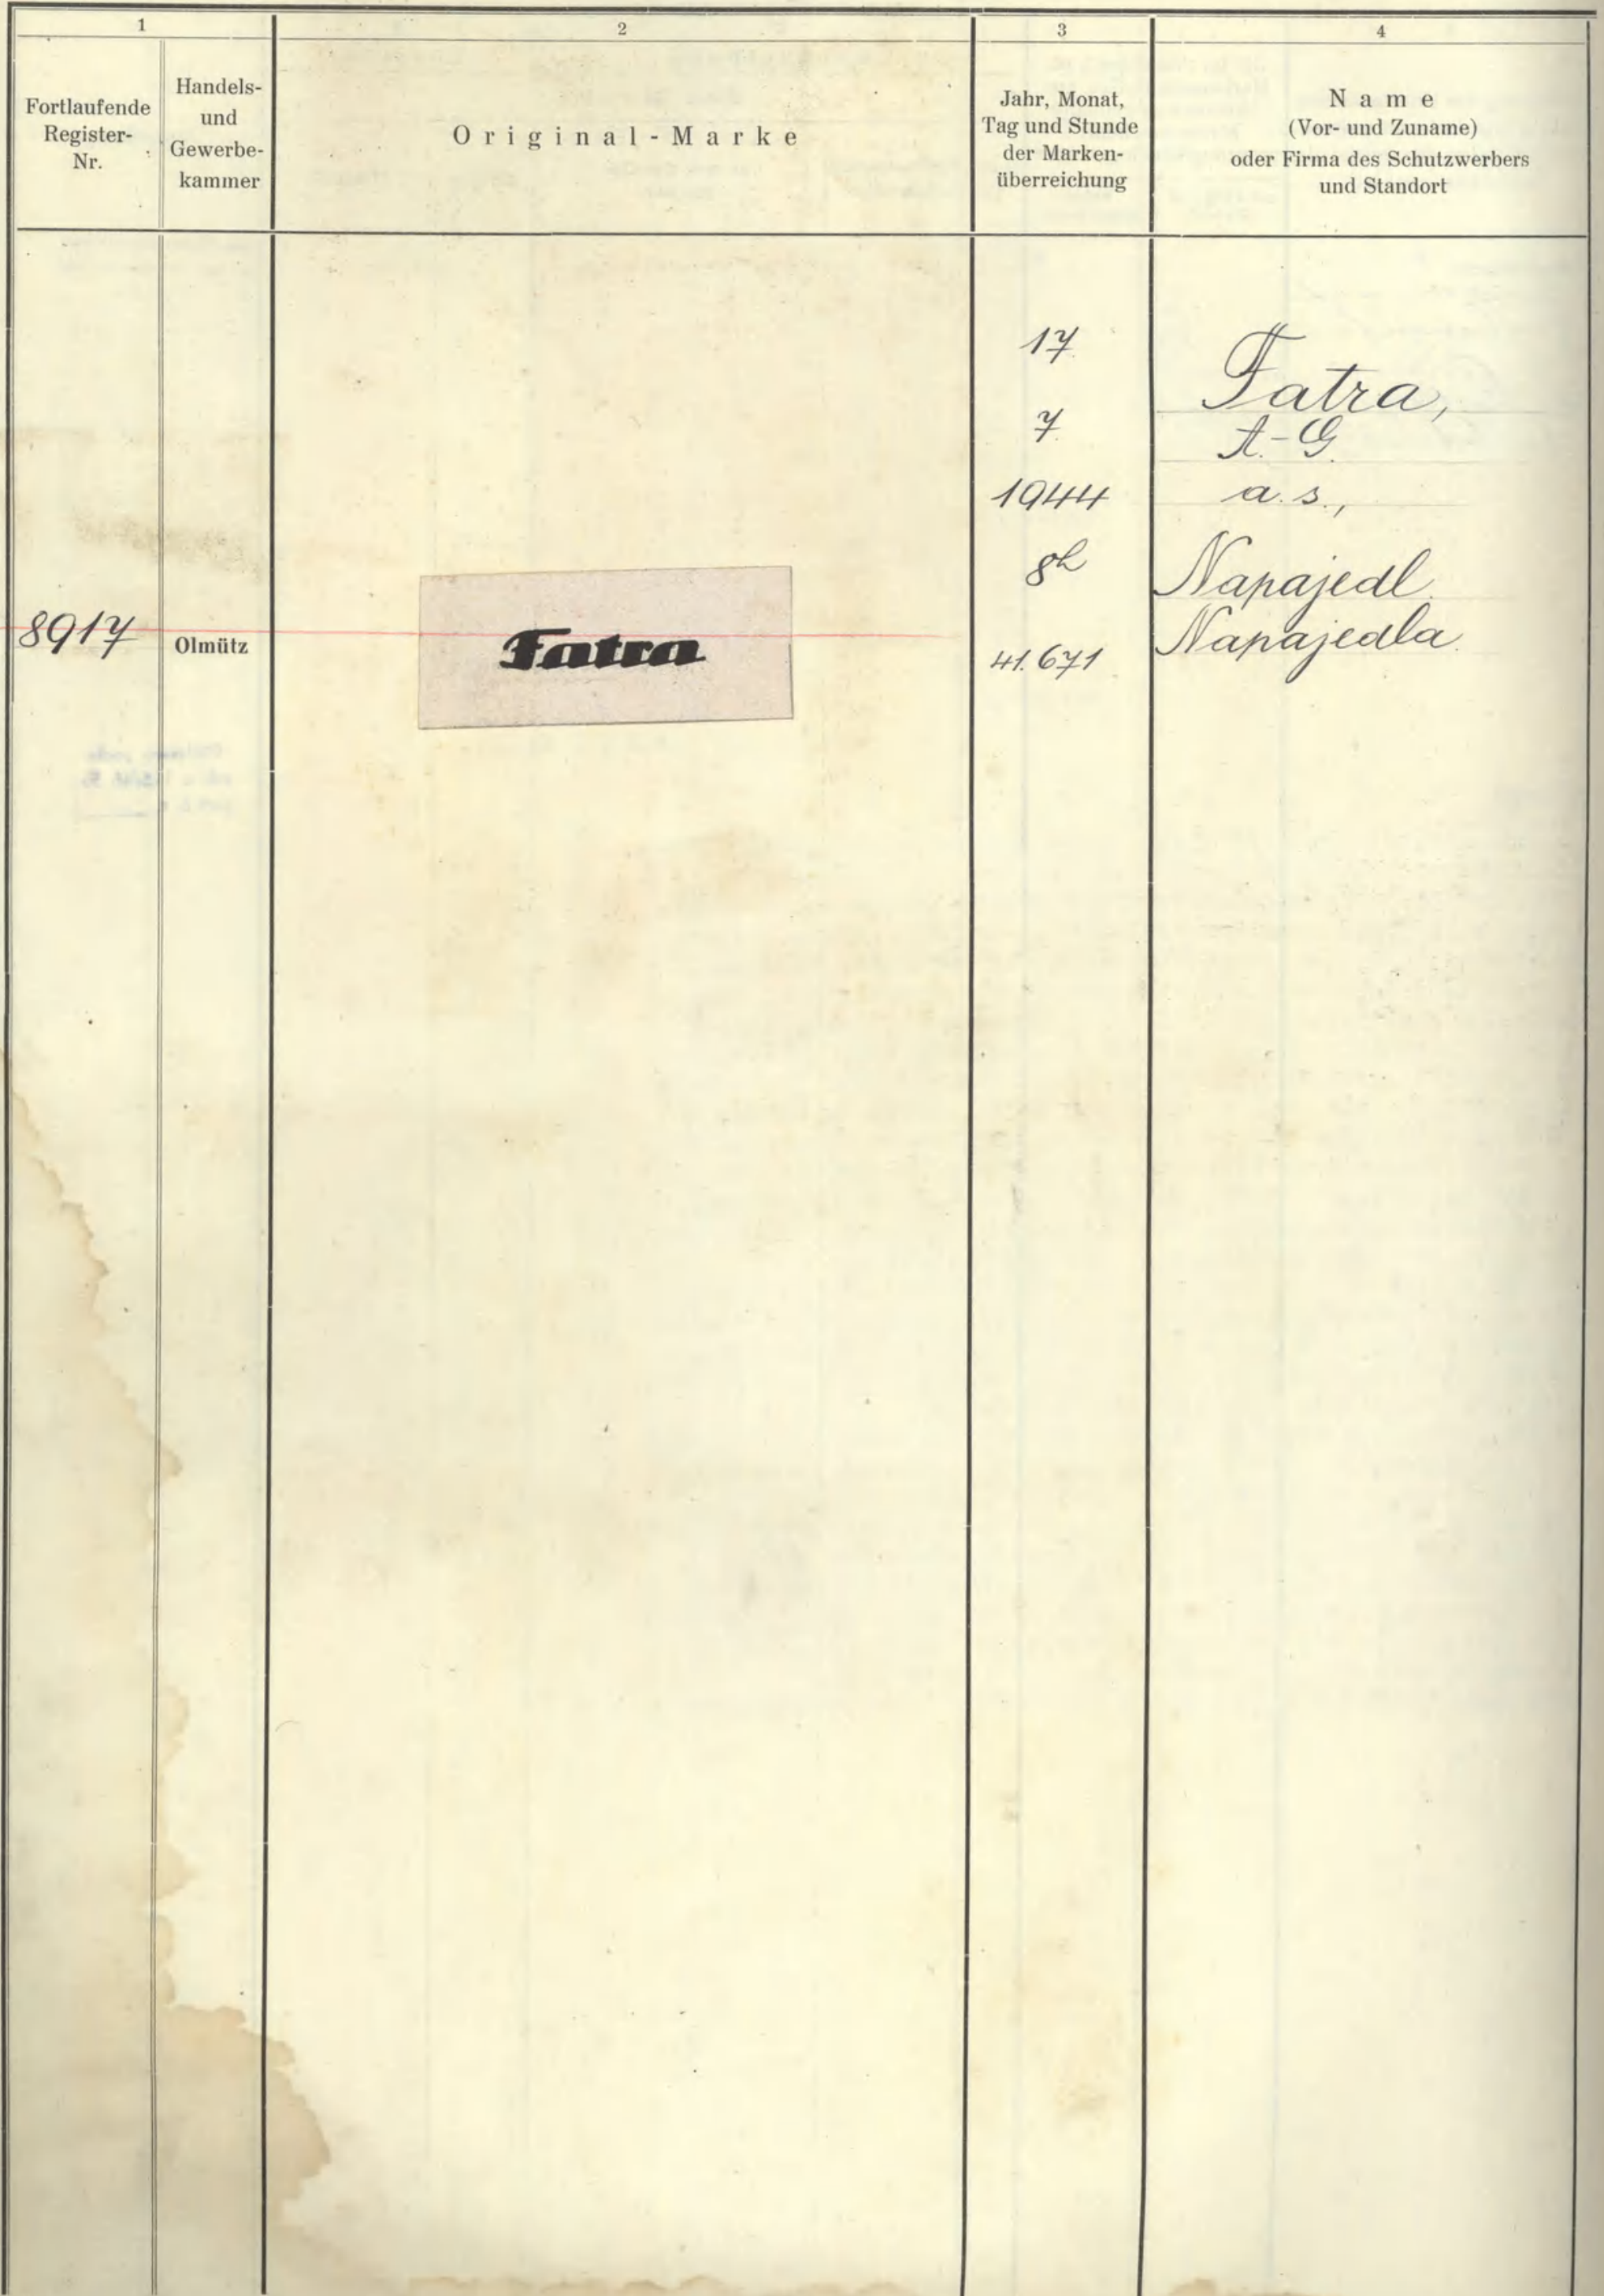 1
2
3
4
Fortlaufende
Register-
Nr.
Handels-
und
Gewerbe-
kammer
Original-Marke
Jahr, Monat,
Tag und Stunde
der Marken-
überreichung
Name
(Vor- und Zuname)
oder Firma des Schutzwerbers
und Standort
8917
Olmütz
Fatra
17
7
1944
8h
41.671
Fatra,
A.-G.
a. s.,
Napajedl.
Napajedla.